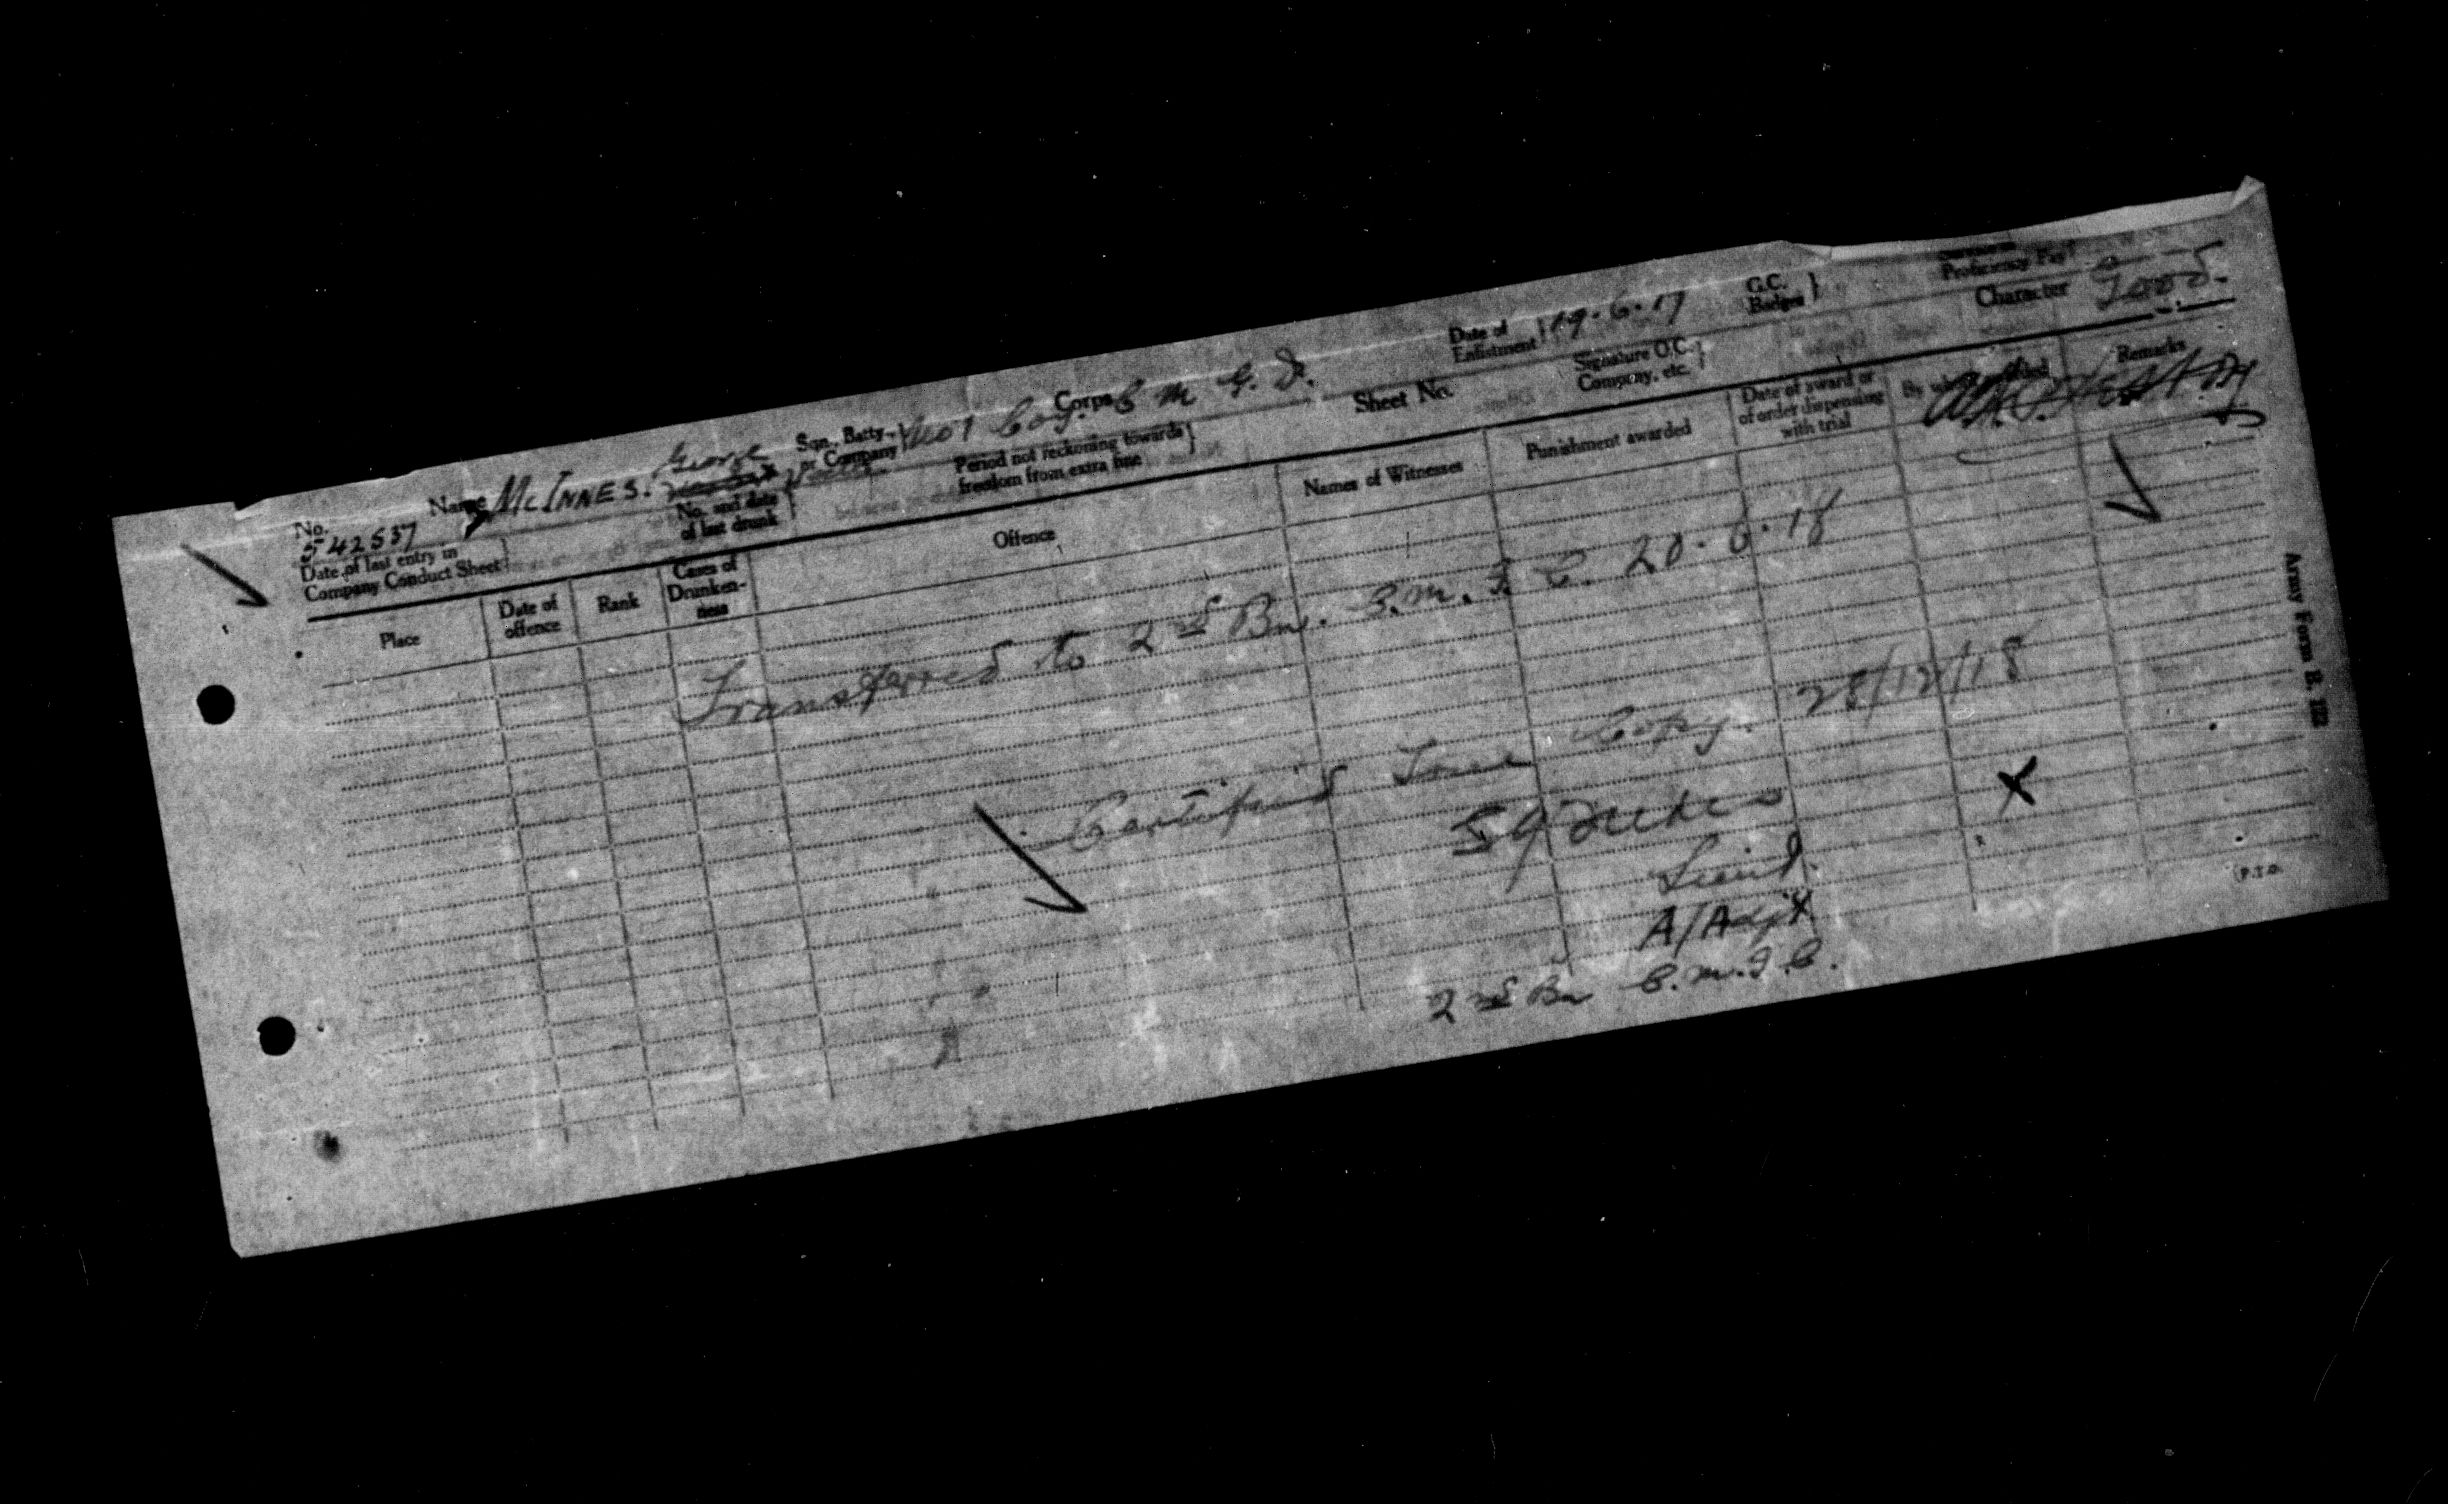 Proficiency Pay
G.C. Badges } Character Good.
Date of Enlistment } 19.6.17
Signature O.C. Company, etc. }
Sheet No.
Corps C M G D.
Sqn., Batty., or Company } No 1 Coy.
Period not reckoning towards freedom from extra fine }
George
Name McINNES.
No. and date of last drunk }
No. 542537
Date of last entry in Company Conduct Sheet }
Place
Date of offence
Rank
Cases of Drunkenness
Offence
Names of Witnesses
Punishment awarded
Date of award or of order dispensing with trial
Remarks
Transferred to 2nd Bn. C.M.G.C. 20.6.18
Certified True Copy. 28/12/18
Lieut.
A/Adjt
2nd Bn C.M.G.C.
Army Form B. 122
(P.T.O.